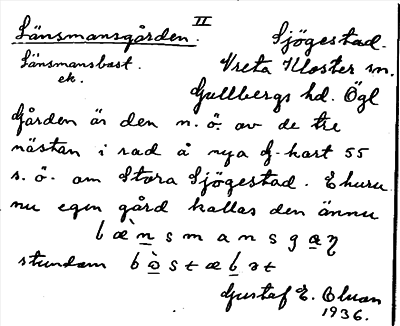 II
Länsmansgården. Sjögestad.
Länsmansbost. Vreta Kloster sn.
ek. Gullbergs hd. Ögl
Gården är den n. ö. av de tre
nästan i rad å nya G-kart 55
s. ö. om Stora Sjögestad. Ehuru
nu egen gård kallas den ännu
l æ̀ n s m a n s g æ ɳ
stundom b ò s t æ l ə t
Gustaf E.
1936.